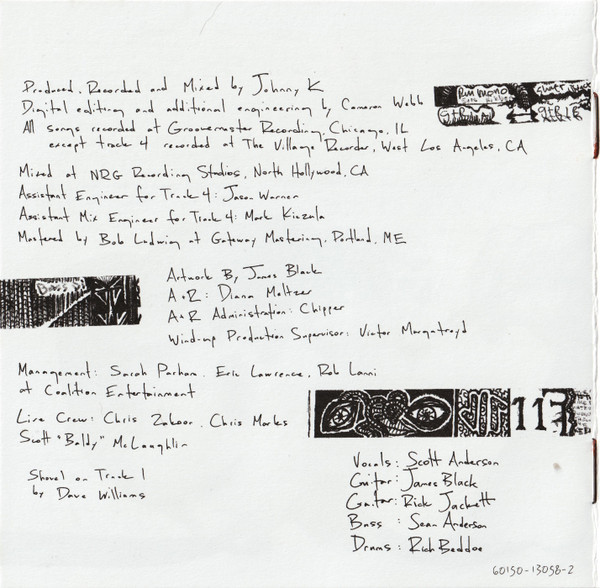 Produced, Recorded and Mixed by Johnny K
Digital editing and additional engineering by Cameron Webb
All songs recorded at Groovemaster Recording, Chicago, IL
except track 4 recorded at The Village Recorder, West Los Angeles, CA
Mixed at NRG Recording Studios, North Hollywood, CA
Assistant Engineer for Track 4: Jason Warner
Assistant Mix Engineer for Track 4: Mark Kiczula
Mastered by Bob Ludwig at Gateway Mastering, Portland, ME
Artwork By James Black
A+R: Diana Meltzer
A+R Administration: Chipper
Wind-up Production Supervisor: Victor Murgatroyd
Management: Sarah Parham, Eric Lawrence, Rob Lanni
at Coalition Entertainment
Live Crew: Chris Zakoor, Chris Marks
Scott "Baldy" McLaughlin
113
Shovel on Track 1
by Dave Williams
Vocals: Scott Anderson
Guitar: James Black
Guitar: Rick Jackett
Bass : Sean Anderson
Drums: Rich Beddoe
60150-13058-2